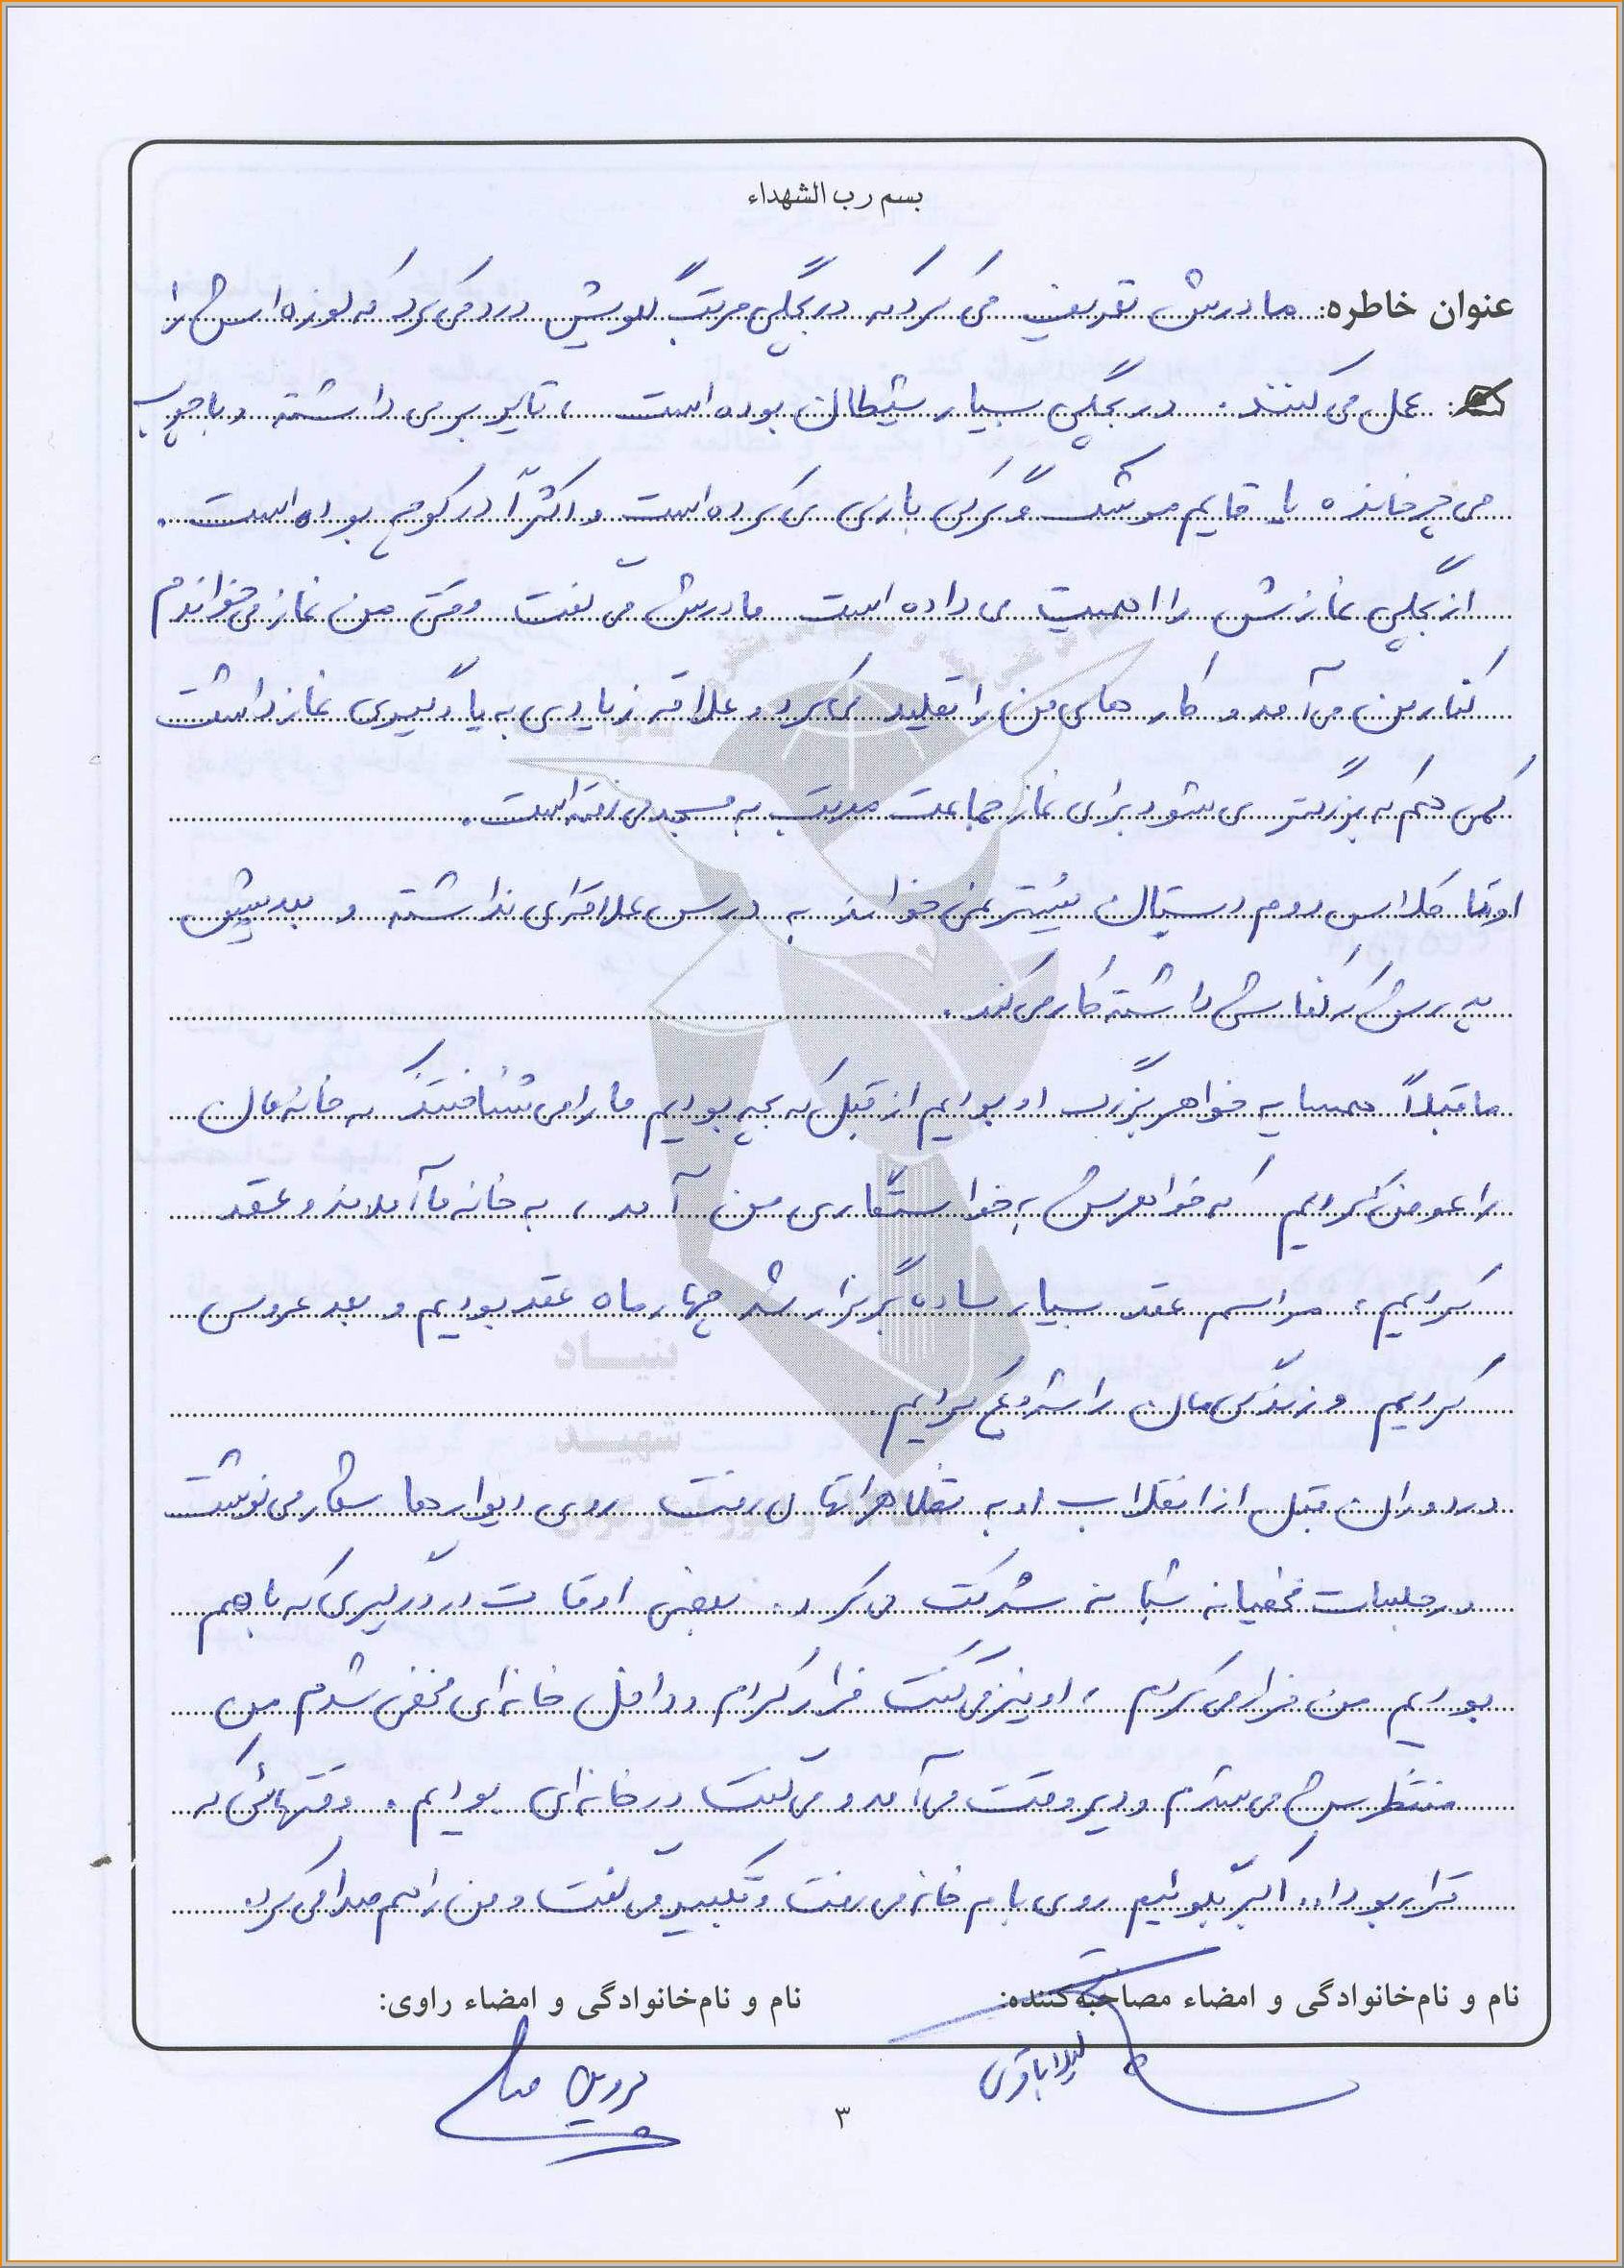 بسم رب الشهداء
عنوان خاطره: مادرش تعریف می کرد که در بچگی مرتب گلویش درد می کرد که لوزه اش را
عمل می کنند. در بچگی بسیار شیطان بوده است، تایر برمی داشته و با چوب
می چرخانده یا قایم موشک و گرگی بازی می کرده است و اکثراً در کوچه بوده است.
از بچگی نمازش را اهمیت می داده است مادرش می گفت وقتی من نماز می خواندم
کنار من می آمد و کارهای من را تقلید می کرد و علاقه زیادی به یادگیری نماز داشت
کمی هم که بزرگتر می شود برای نماز جماعت مرتب به مسجد می رفته است.
او تا کلاس دوم دبستان بیشتر نمی خواند به درس علاقه ای نداشته و بعد پیش
پدرش که کفاشی داشته کار می کند.
ما قبلاً همسایه خواهر بزرگ او بودیم از قبل که بچه بودیم ما را می شناختند که خانه مان
را عوض کردیم که خواهرش به خواستگاری من آمد، به خانه ما آمدند و عقد
کردیم، مراسم عقد بسیار ساده برگزار شد چهار ماه عقد بودیم و بعد عروسی
کردیم و زندگی مان را شروع کردیم
در دوران قبل از انقلاب او به تظاهراتها می رفت روی دیوارها شعار می نوشت
در جلسات مخفیانه شبانه شرکت می کرد. بعضی اوقات در درگیری که با هم
بودیم من فرار می کردم، او نیز می گفت فرار کردم و داخل خانه ای مخفی شدم من
منتظرش می شدم و دیر وقت می آمد و می گفت در خانه ای بودیم. وقتهائی که
قرار بود الله اکبر بگوئیم روی بام خانه می رفت و تکبیر می گفت و من را هم صدا می کرد.
نام و نام خانوادگی و امضاء مصاحبه کننده:
نام و نام خانوادگی و امضاء راوی:
لیلا باقری
۳
بنیاد
شهید